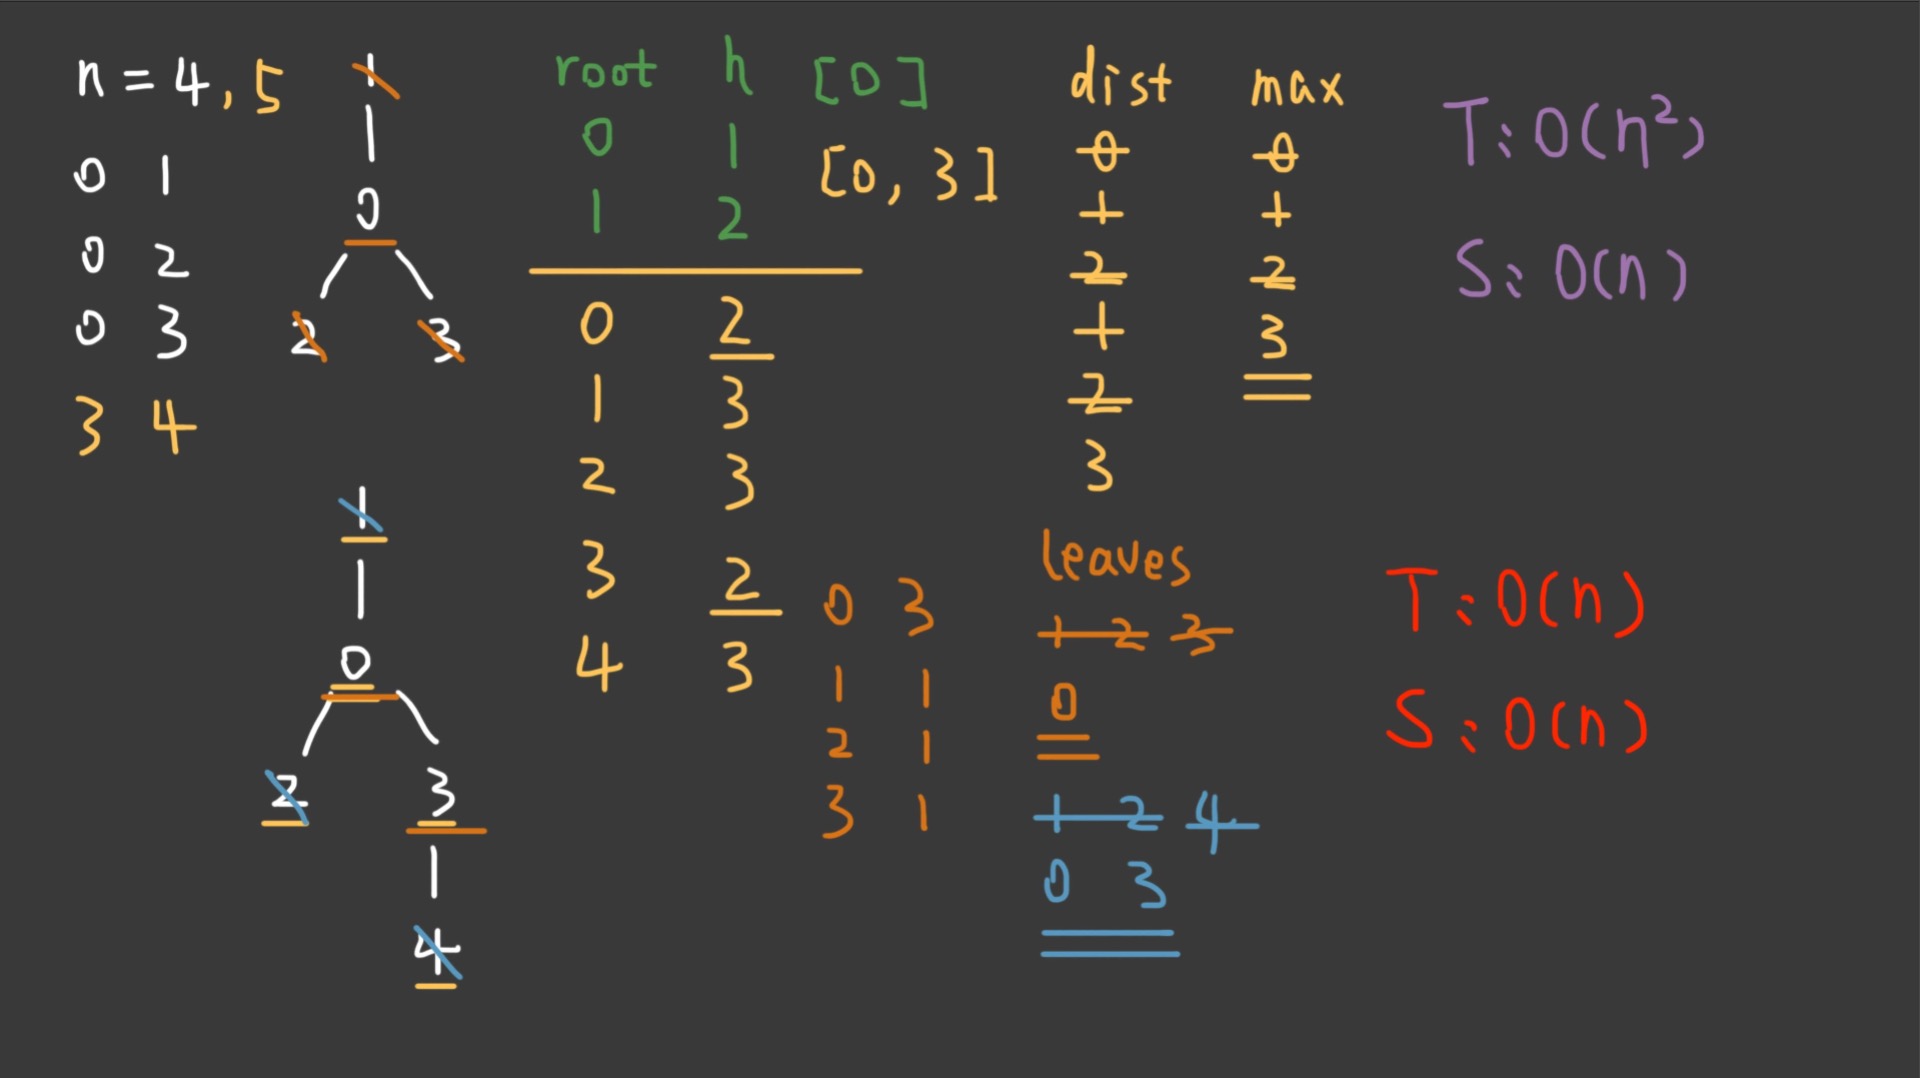 n = 4, 5
0 1
0 2
0 3
3 4
1
0
2 3
1
0
2 3
4
root h [0]
0 1 [0, 3]
1 2
0 2
1 3
2 3
3 2
4 3
0 3
1 1
2 1
3 1
dist max
0 0
1 1
2 2
1 3
2
3
leaves
1 2 3
0
1 2 4
0 3
T: O(n²)
S: O(n)
T: O(n)
S: O(n)